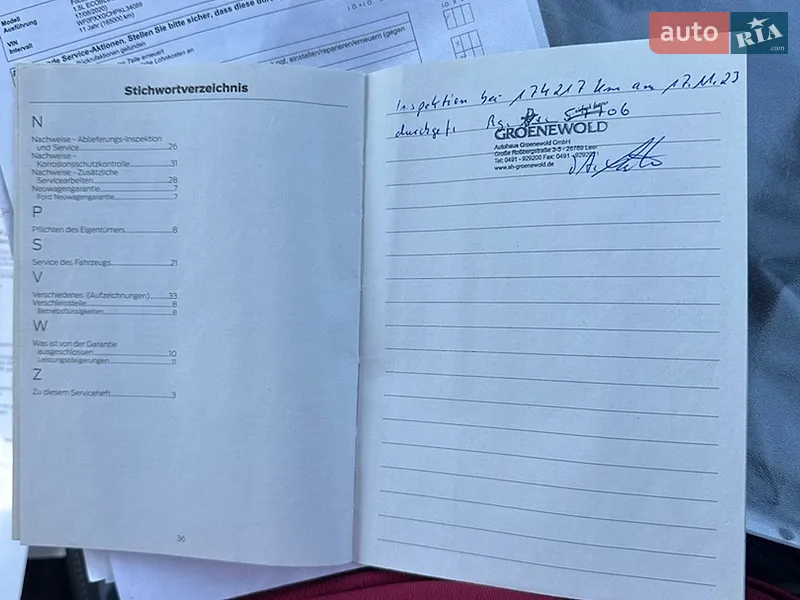 Modell
Ausführung
1.5L ECOBL
17/08/2020)
VIN
Intervall
11 Jahr (165000 km)
de Service-Aktionen. Stellen Sie bitte sicher, dass diese
auto RIA .com
Stichwortverzeichnis
N
Nachweise - Ablieferungs-Inspektion
und Service 26
Nachweise -
Korrosionsschutzkontrolle 31
Nachweise - Zusätzliche
Servicearbeiten 28
Neuwagengarantie 7
Ford Neuwagengarantie 7
P
Pflichten des Eigentümers 8
S
Service des Fahrzeugs 21
V
Verschiedenes (Aufzeichnungen) 33
Verschleissteile 8
Betriebsflüssigkeiten 8
W
Was ist von der Garantie
ausgeschlossen 10
Leistungssteigerungen 11
Z
Zu diesem Serviceheft 3
36
Inspektion bei 174217 km am 17.11.23
durchgef.
GROENEWOLD
Autohaus Groenewold GmbH
Große Roßbergstraße 3-5 · 26789 Leer
Tel: 0491 - 929200 Fax: 0491 -
www.ah-groenewold.de